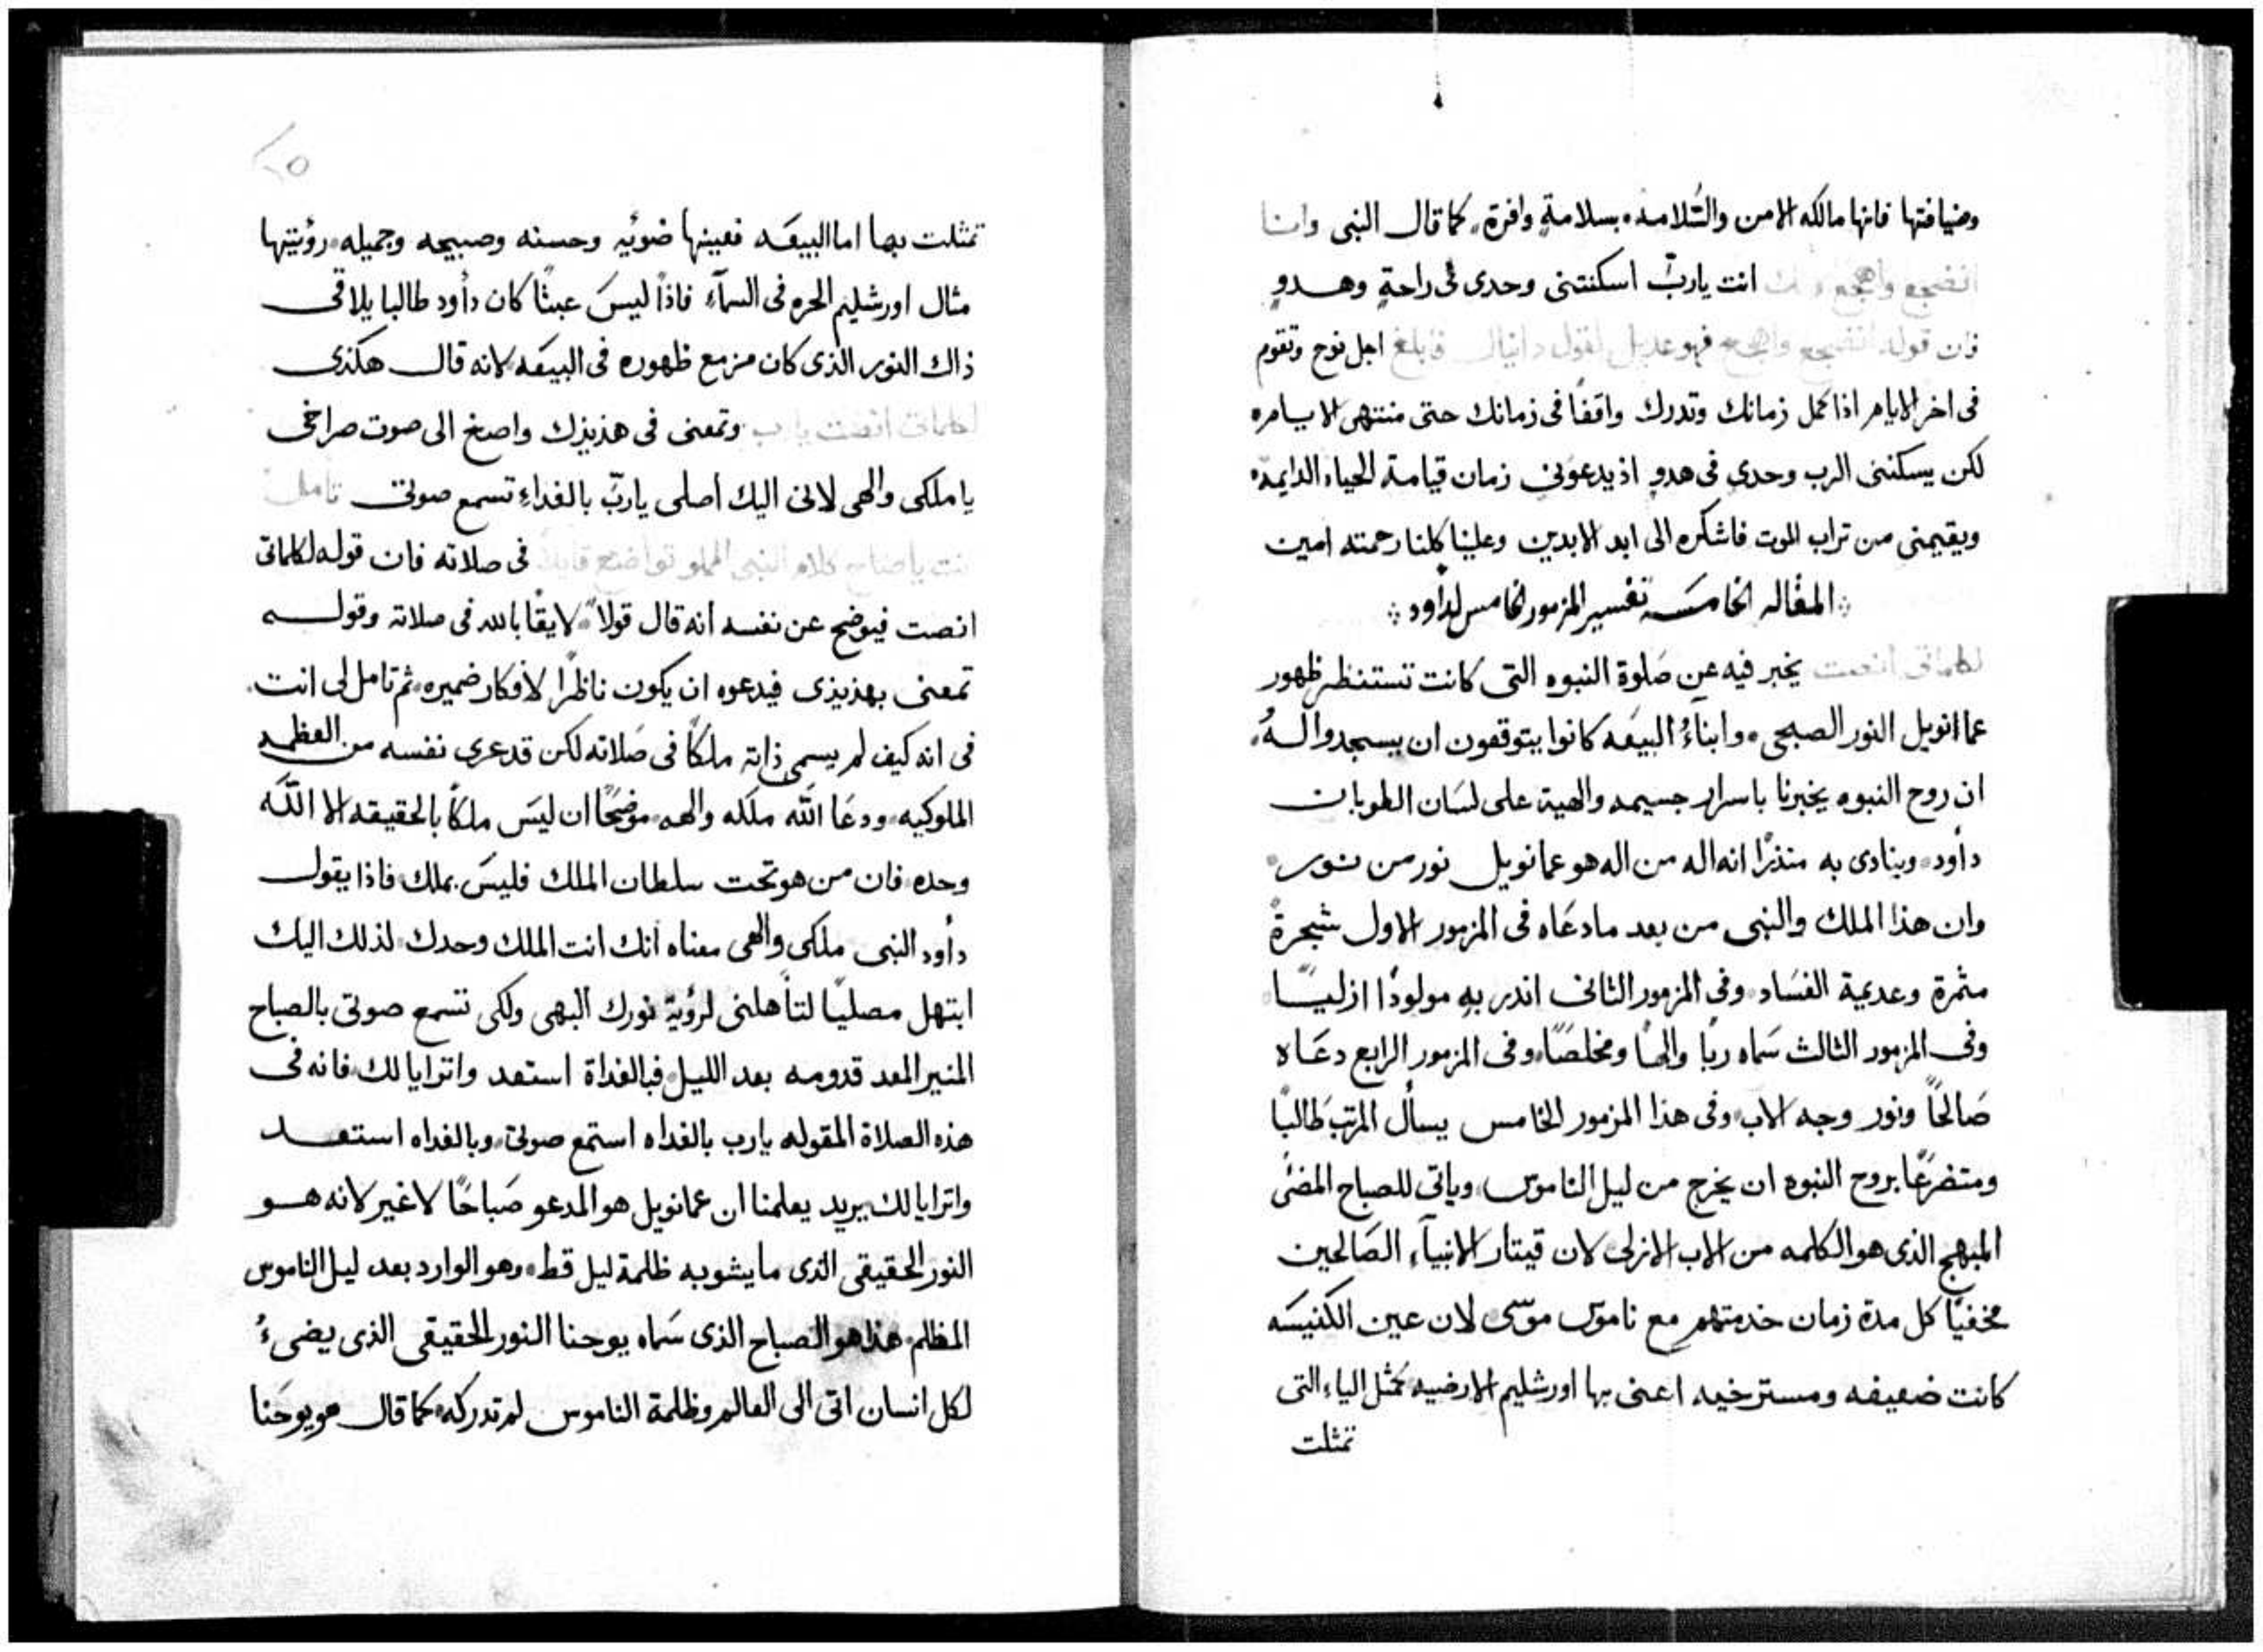 وضيافتها فانها مالكه الامن والسَّلامه بسلامةٍ وافرة، كما قال النبى وانا
انضجع واهجع انت ياربّ اسكنتنى وحدى فى راحةٍ وهدوٍ
فان قوله انضجع واهجع فهو عديل لقول دانيال اجل نوح وتقوم
فى اخر الايام اذا كمل زمانك وتدرك واقفاً فى زمانك حتى منتهى الايام
لكن يسكننى الرب وحدى فى هدوٍ اذ يدعونى زمان قيامة الحياه الدايمه
ويقيمنى من تراب الموت فاشكره الى ابد الابدين وعلينا كلنا رحمته امين
المقاله الخامسَه تفسير المزمور الخامس لداود
لكلماتى انصت يخبر فيه عن صَلوة النبوه التى كانت تستنظر ظهور
عمانويل النور الصبحى وابناءُ البيعَه كانوا يتوقعون ان يسجدوا لهُ
ان روح النبوه يخبرنا باسرار جسيمه والهية على لسَان الطوبان
داود وينادى به منذرًا انه اله من اله هو عمانويل نور من نور
وان هذا الملك والنبى من بعد ما دعَاه فى المزمور الاول شجرةً
مثمرة وعديمة الفسَاد وفى المزمور الثانى انذر به مولودًا ازليًا
وفى المزمور الثالث سَماه ربًا والهًا ومخلصًا، وفى المزمور الرابع دعَاه
صَالحًا ونور وجه الاب وفى هذا المزمور الخامس يسأل المرتب طالبًا
ومتضرعًا بروح النبوه ان يخرج من ليل الناموس وياتى للصباح المضئ
المبهج الذى هو الكلمه من الاب الازلى لان قيتار الانبيآء الصَالحين
مخفيًا كل مدة زمان خدمتهم مع ناموس موسى لان عين الكنيسَه
كانت ضعيفه ومسترخيه اعنى بها اورشليم الارضيه كمثل الياء التى
تمثلت
تمثلت بها اما البيعَه فعينها ضوئيه وحسنه وصبيحه وجميله رؤيتها
مثال اورشليم الحره فى السمآء فاذاً ليسَ عبثًا كان داود طالبا يلاقى
ذاك النور الذى كان مزمع ظهوره فى البيعَه لانه قال هكذى
لكلماتى انصت يارب وتمعنى فى هذيذك واصغ الى صوت صراخى
يا ملكى والهى لانى اليك اصلى ياربّ بالغداءِ تسمع صوتى تامل
انت ياصاح كلام النبى المملو تواضع قايلاً فى صلاته فان قوله لكلماتى
انصت فيوضح عن نفسه انه قال قولاً لايقًا بالله فى صلاته وقوله
تمعنى بهذيذى فيدعوه ان يكون ناظرًا لافكار ضميره ثم تامل لى انت
فى انه كيف لم يسمى ذاته ملكًا فى صَلاته لكن قد عرى نفسه من العظمه
الملوكيه ودعَا الله ملكه والهه موضحًا ان ليسَ ملكًا بالحقيقه الا اللَه
وحده فان من هو تحت سلطان الملك فليسَ بملك فاذا يقول
داود النبى ملكى والهى معناه انك انت الملك وحدك لذلك اليك
ابتهل مصليًا لتأهلنى لرؤية نورك البهى ولكى تسمع صوتى بالصباح
المنير المعد قدومه بعد الليل فبالغداة استعد واترايا لك فانه فى
هذه الصلاة المقوله يارب بالغداه استمع صوتى وبالغداه استعد
واترايا لك يريد يعلمنا ان عمانويل هو المدعو صَباحًا لاغير لانه هو
النور الحقيقى الذى ما يشوبه ظلمة ليل قط، وهو الوارد بعد ليل الناموس
المظلم هذا هو الصباح الذى سَماه يوحنا النور الحقيقى الذى يضىءُ
لكل انسان اتى الى العالم وظلمة الناموس لم تدركه كما قال هو يوحَنا